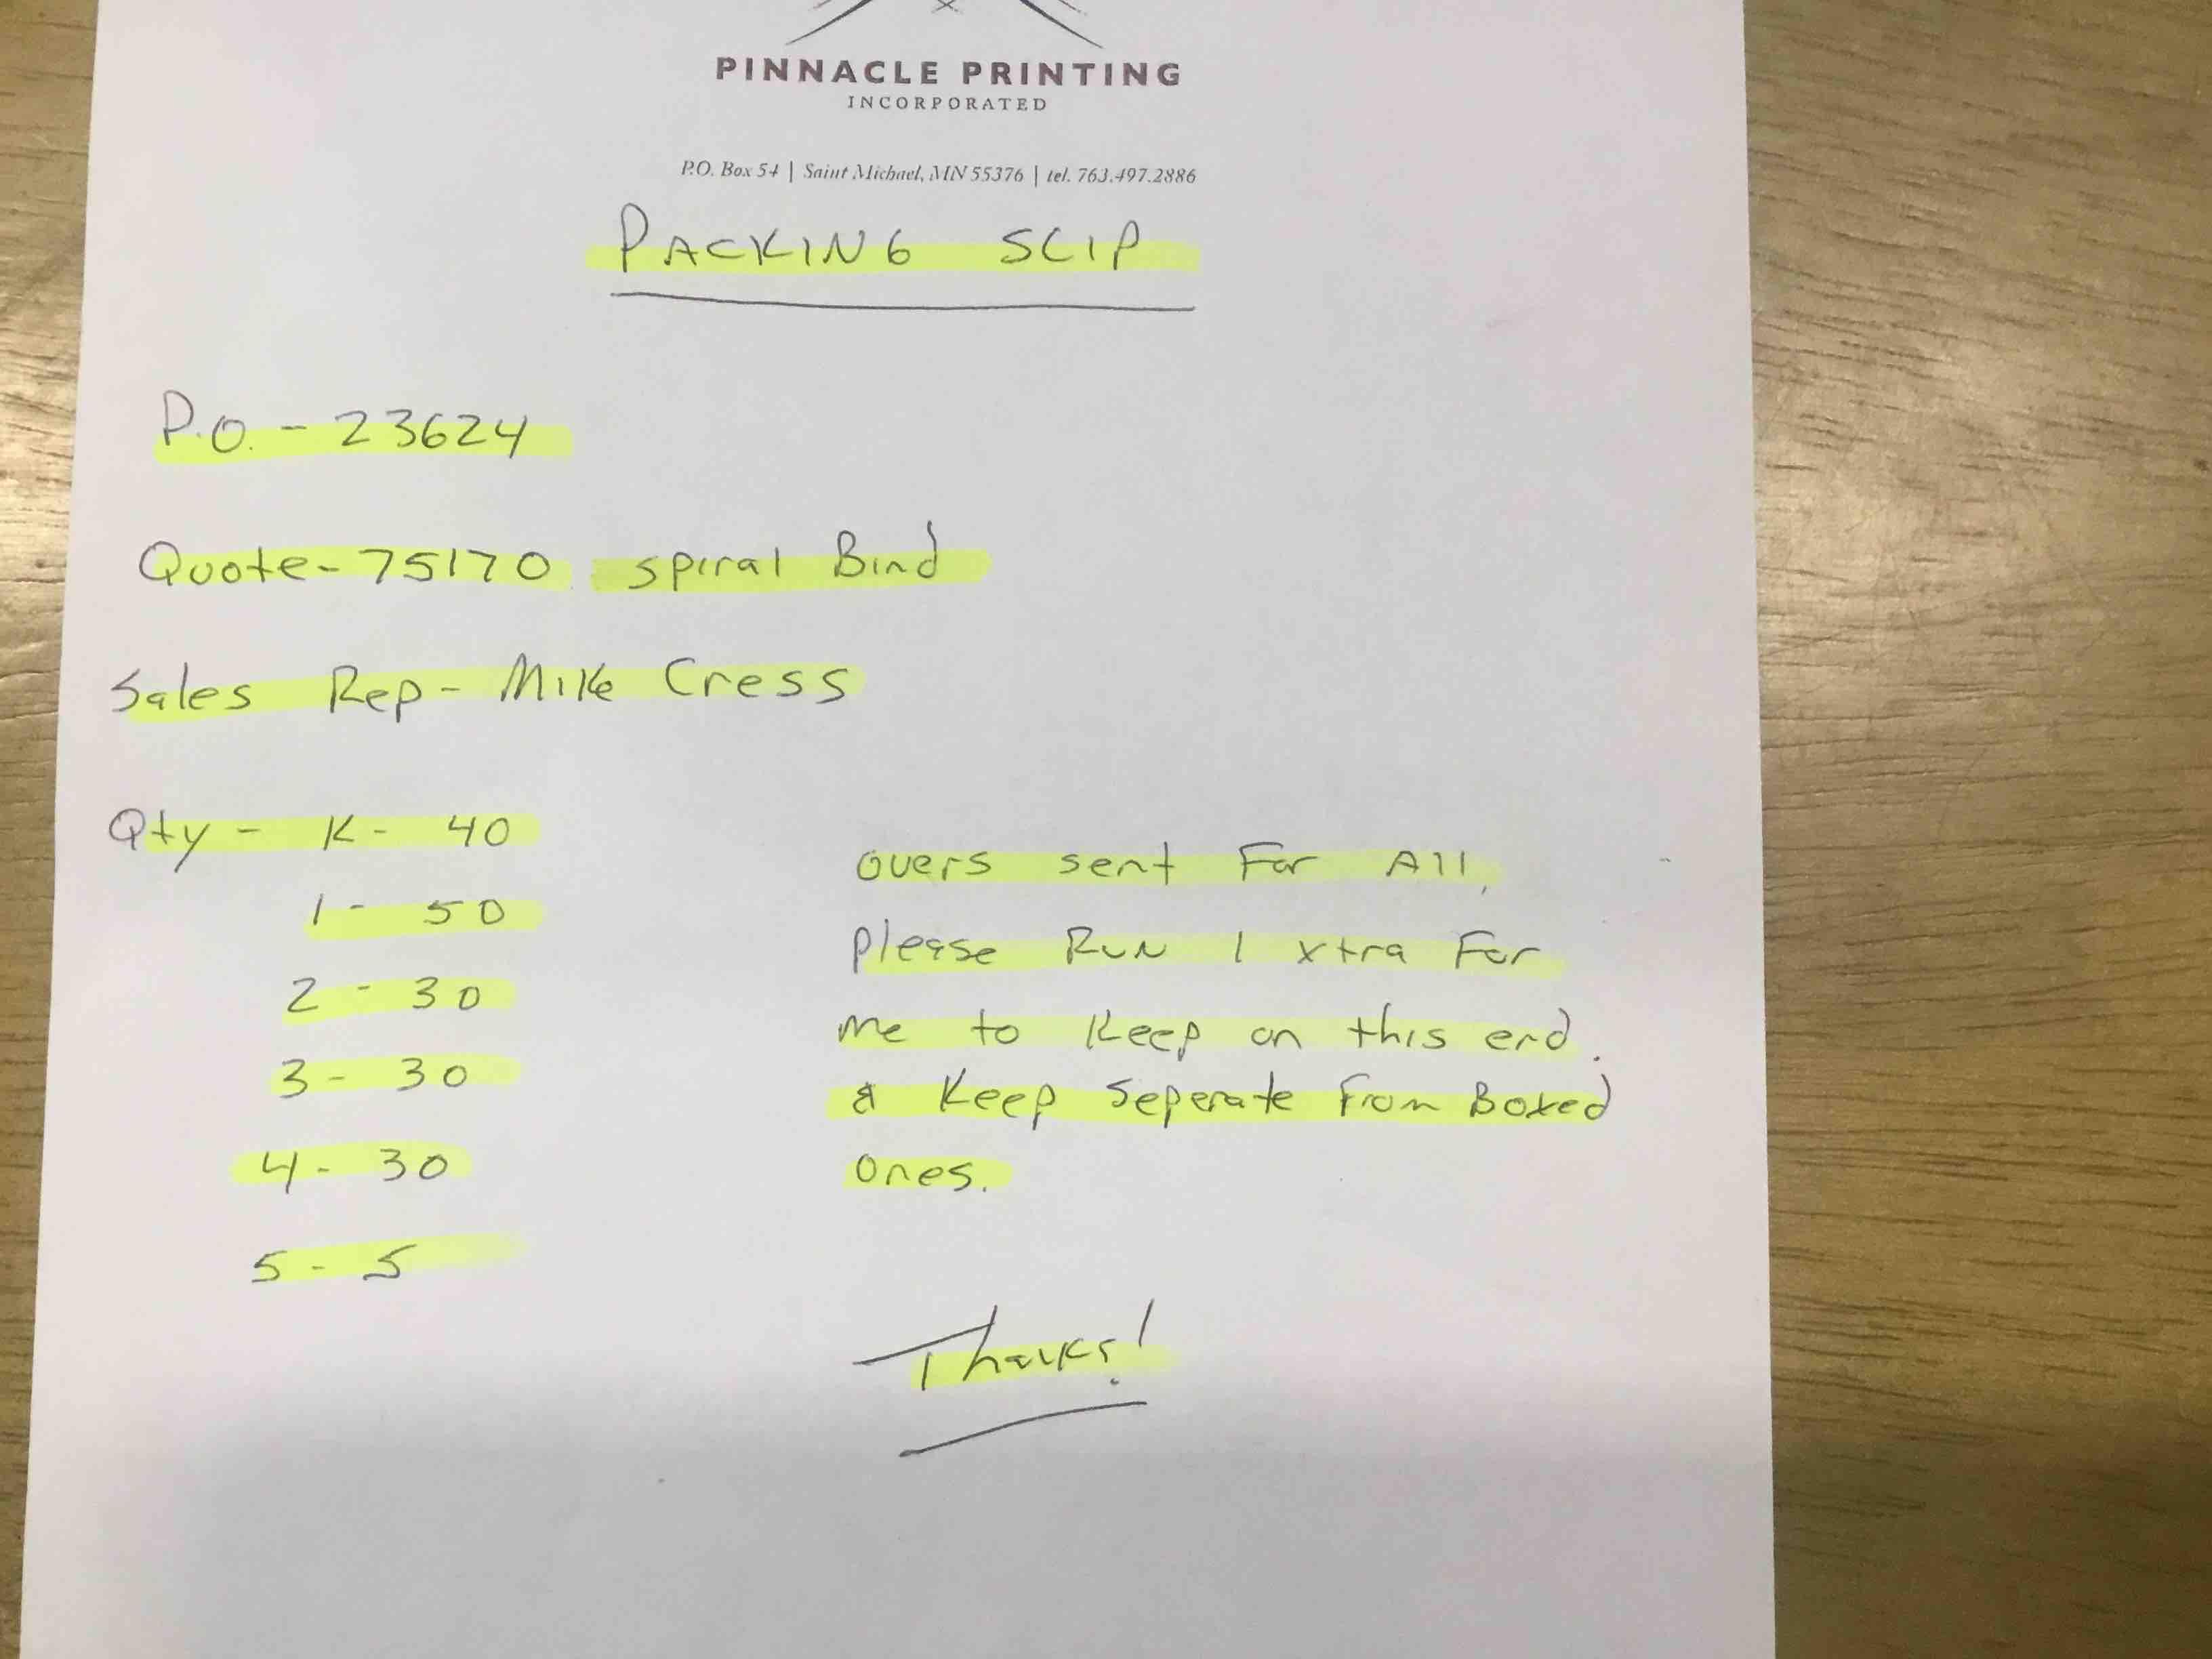 PINNACLE PRINTING
INCORPORATED
P.O. Box 54 | Saint Michael, MN 55376 | tel. 763.497.2886
PACKING SLIP
P.O. - 23624
Quote - 75170 spiral Bind
Sales Rep - Mike Cress
Qty - K - 40
1 - 50
2 - 30
3 - 30
4 - 30
5 - 5
overs sent For All,
please Run 1 xtra For
me to Keep on this end.
& Keep Seperate From Boxed
ones.
Thanks!